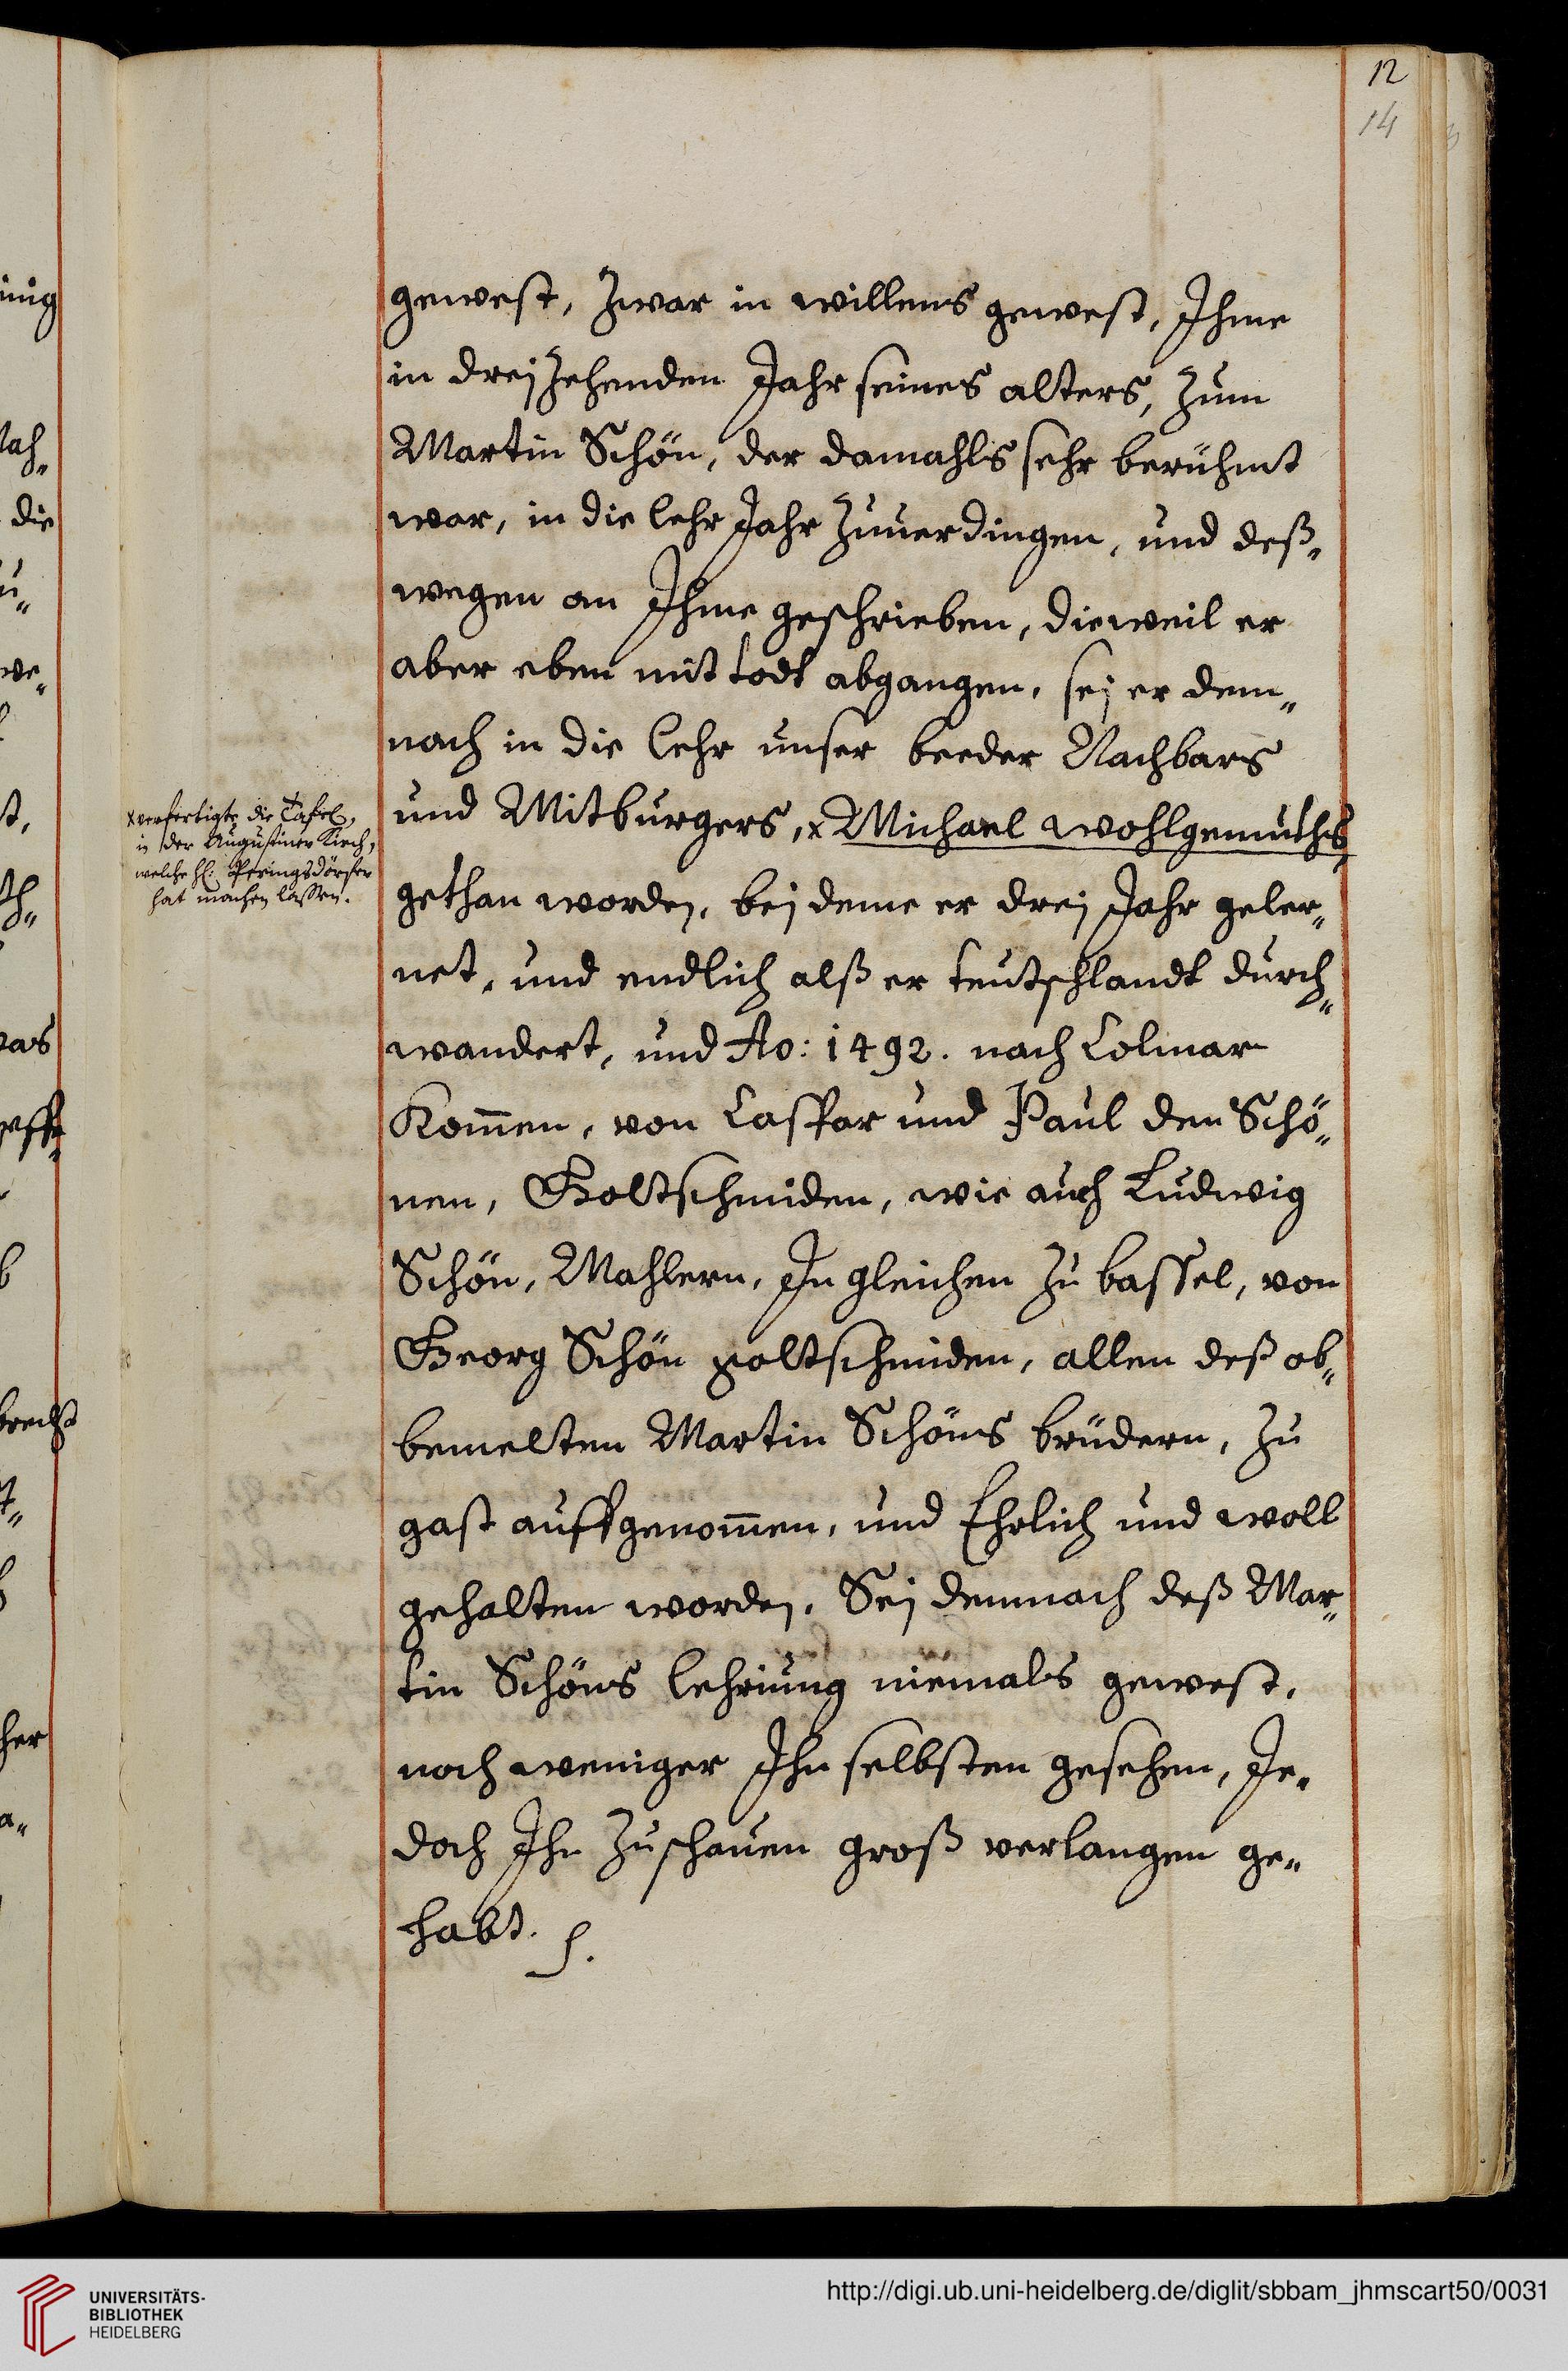 12
14
gewest, Zwar in willens gewest, Ihme
in dreijzehenden Jahr seines alters, zum
Martin Schön, der damahls sehr berühmt
war, in die lehr Jahr zuuerdingen, und deß„
wegen an Ihme geschrieben, dieweil er
aber eben mit todt abgangen, sej er dem„
nach in die lehr unser beeder Nachbars
und Mitburgers, x Michael wohlgemuths,
gethan worden, bej deme er drej Jahr geler„
net, und endlich alß er teutschlandt durch„
wandert, und Ao: 1492. nach Colmar
Kom̄en, von Caspar und Paul den Schö„
nen, Goltschmiden, wie auch Ludwig
Schön, Mahlern, In gleichen zu bassel, von
Georg Schön goltschmiden, allen deß ob„
bemelten Martin Schöns brüdern, zu
gast auffgenom̄en, und Ehrlich und woll
gehalten worden, Sej demnach deß Mar„
tin Schöns lehriung niemals gewest,
noch weniger Ihn selbsten gesehen, Je„
doch Ihn zuschauen groß verlangen ge„
habt.
x verfertigte die Tafel,
in der Augustiner Kirch,
welche H: Peringsdörfer
hat machen lassen.
inig
die
was
her
UNIVERSITÄTS-
BIBLIOTHEK
HEIDELBERG
http://digi.ub.uni-heidelberg.de/diglit/sbbam_jhmscart50/0031